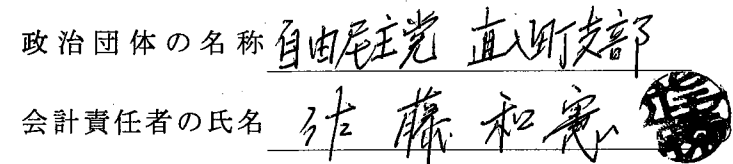 政治団体の名称 自由民主党 直入町支部
会計責任者の氏名 佐藤和憲